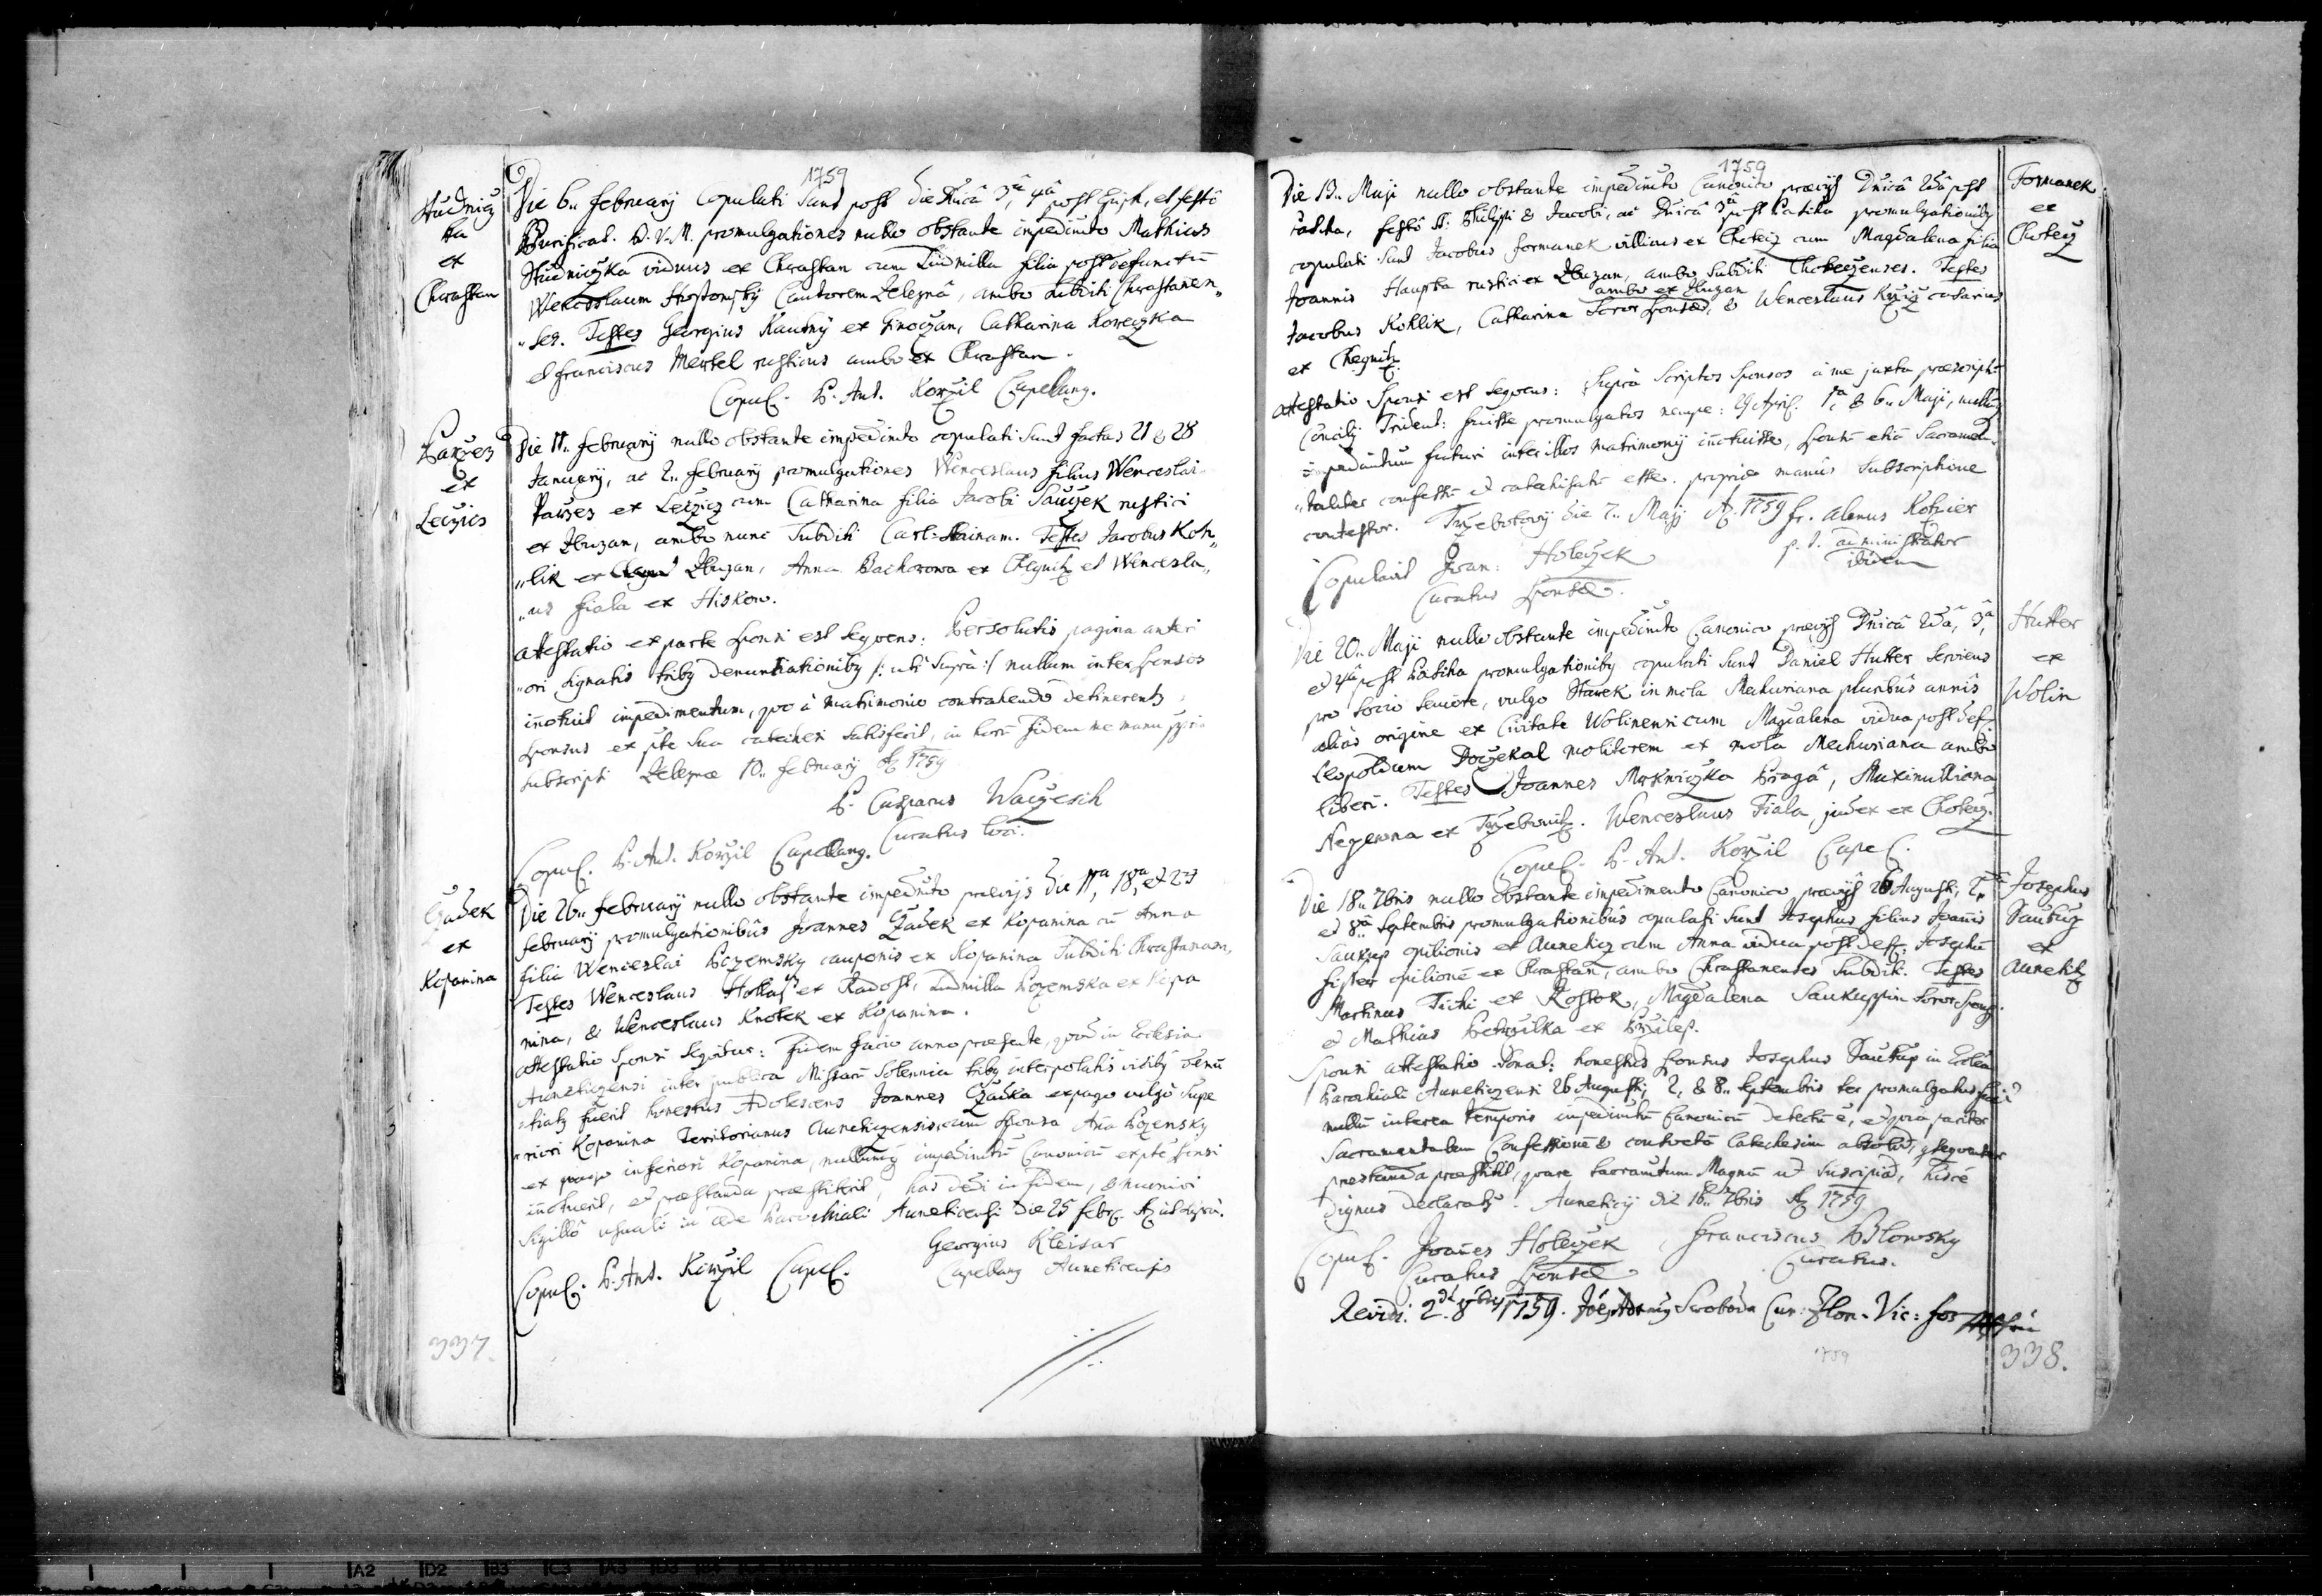 1759
Studnicz
ka
ex
Chrastan
Die 6.. February Copulati sunt post die Dnicâ 3â, 4â post Epiph, et festô
Purificat. B.V.M. promulgationes nullo obstante impedimto Mathias
Studniczka viduus ex Chrastan cum Ludmilla filia post defunctũ
Wenceslaum Cantorem Zeleznâ, ambo subditi Chrastanen„
„ses. Testes Georgius Kautny ex Ginoczan, Catharina Koreczka
et franciscus Mertel rusticus ambo ex Chrastan.
Copul. P. Ant. Korzil Capellang.
Parzez
ex
Leczicz
Die 11.. february nullo obstante impedimto copulati sunt factas 21 & 28
January, ac 2.. february promulgationes Wenceslaus filius Wenceslai
Parzez ex Leczicz cum Catharina filia Jacobi Sauczek rustici
ex Zbuzan, ambo nunc Subditi Carl-Stainam. Testes Jacobus Koh„
„lik ex Zbuzan, Anna Bachorowa ex Chegnitz et Wencesla„
„us fiala ex Hiskow.
Attestatio ex parte sponsi est seqvens: Persolutis pagina anteri
„ori signatis tribq denuntiationibq /: uti supra :/ nullum inter sponsos
inotuit impedimentum, qvo à matrimonio contrahendo detinerentr,
sponsus ex pte sua catechesi satisfecit, in horũ fidem me manu ppria
subscripsi Zeleznae 10.. february Aq 1759
P. Casparus Waczesch
Curatus loci.
Copul. P. Ant. Korzil Capellang.
Czadek
ex
Kopanina
Die 26.. february nullo obstante impedimto praevijs die 11a, 18a, et 24
february promulgationibûs Joannes Czadek ex Kopanina cũ Anna
filia Wenceslai Pozemsky cauponis ex Kopanina Subditi Chrastanam,
Testes Wenceslaus Hollas ex Radost, Ludmilla Pozemska ex Kopa
nina, & Wenceslaus Knotek ex Kopanina.
Attestatio sponsi seqvitur: fidem facio anno praesente, qvod in Ecclesia
Auneticzensi inter publica Missarũ Solennia tribq interpolatis vicibq denũ
„tiatq fuerit honestus Adolescens Joannes Czadka ex pago vulgò Supe
„riori Kopanina Territorianus Auneticzensis, cum sponsa Aña Pozensky
ex pago inferiori Kopanina, nullumq impedimtũ Canonicũ ex pte sponsi
inotuerit, et praestanda praestiterit, has dedi in fidem, & munivi
Sigillô usuali in aede Parochiali Auneticensi Die 25 febr. Aq ut supra.
Georgius Kleisar
Capellang Auneticensis
Copul. P. Ant. Korzil Capel.
337.
1759
Formanek
ex
Chotecz
Die 13.. Maji nullo obstante impedimto Canonico praevijs Dnicâ 2dâ post
Pascha, festô SS: Philippi & Jacobi, ac Dnicâ 3â post Pascha promulgationibq
copulati sunt Jacobus formanek villicus ex Chotecz cum Magdalena filia
Joannis Haupka rustici ex Zbuzan, ambo Subditi Choteczenses. Testes
ambo ex Zbuzan
Jacobus Kohlik, Catharina Soror sponsae, & Wenceslaus Krziz casarius
ex Chegnitz
Attestatio Sponsi est seqvens: Supra Scriptos Sponsos à me juxta praescript
Concilij Trident: fuisse promulgatos nempe: 29 April. 1a, & 6.. Maji, nullũq
impedimtum futuri inter illos matrimonij inotuisse, sponsũ etiã Sacramen„
„taliter confessũ et catechisatũ esse. propriae manûs Subscriptione
contestor. Trzebotovij die 7.. Maij Aq 1759 fr. Alanus Kotzier
p.t. administrator
ibidem
Copulavit Joan: Holeczek
Curatus sponsae.
Hutter
ex
Wolin
Die 20.. Maji nullo obstante impedimto Canonico praevijs Dnicâ 2dâ, 3â,
et 4â post Pascha promulgationibq copulati sunt Daniel Hutter serviens
pro socio seniore, vulgo Starek in mola Mechuriana pluribûs annis
aliàs origine ex Civitate Wolinensi cum Magdalena vidua post def:
Leopoldum Doczekal molitorem ex mola Mechuriana ambo
liberi. Testes Joannes Mrkwiczka Pragâ, Maximilliana
Negerona ex Trzebonitz. Wenceslaus Fiala, judex ex Chotecz.
Copul. P. Ant. Korzil Capel.
Josephus
Saukup
ex
Aunetitz
Die 18.. 7bris nullo obstante impedimento Canonico praevijs 26 Augusti, 2..
et 8â Septembris promulgationibûs copulati sunt Josephus filius Joañis
Saukup opilionis ex Auneticz cum Anna vidua post def: Josephũ
fister opilionẽ ex Chrastan, ambo Chrastanenses Subditi. Testes
Martinus Tichi ex Rostok, Magdalena Saukuppin Soror Sponsi
et Mathias Petrzilka ex Przilep.
Sponsi attestatio sonat: honestus sponsus Josephus Saukup in Ecclesia
Parochiali Auneticzensi 26 Augusti, 2, & 8.. Septembris ter promulgatus fuit
nullũ interea temporis impedimtũ Canonicũ detectũ ẽ, et quia pariter
Sacramentalem Confessionẽ & consvetã Catechesim absolvit,
praestanda praestitit, qvare Sacramtum Magnũ ut Suscipiat, hisce
Dignus declaratq. Auneticij die 16.. 7bris Aq 1759
franciscus Wlowsky
Curatus.
Copul. Joañes Holeczek
Curatus sponsae
Revidi. 2da 8bris 1759. Swoboda Cur: Zlon: Vic: for
1759
338.